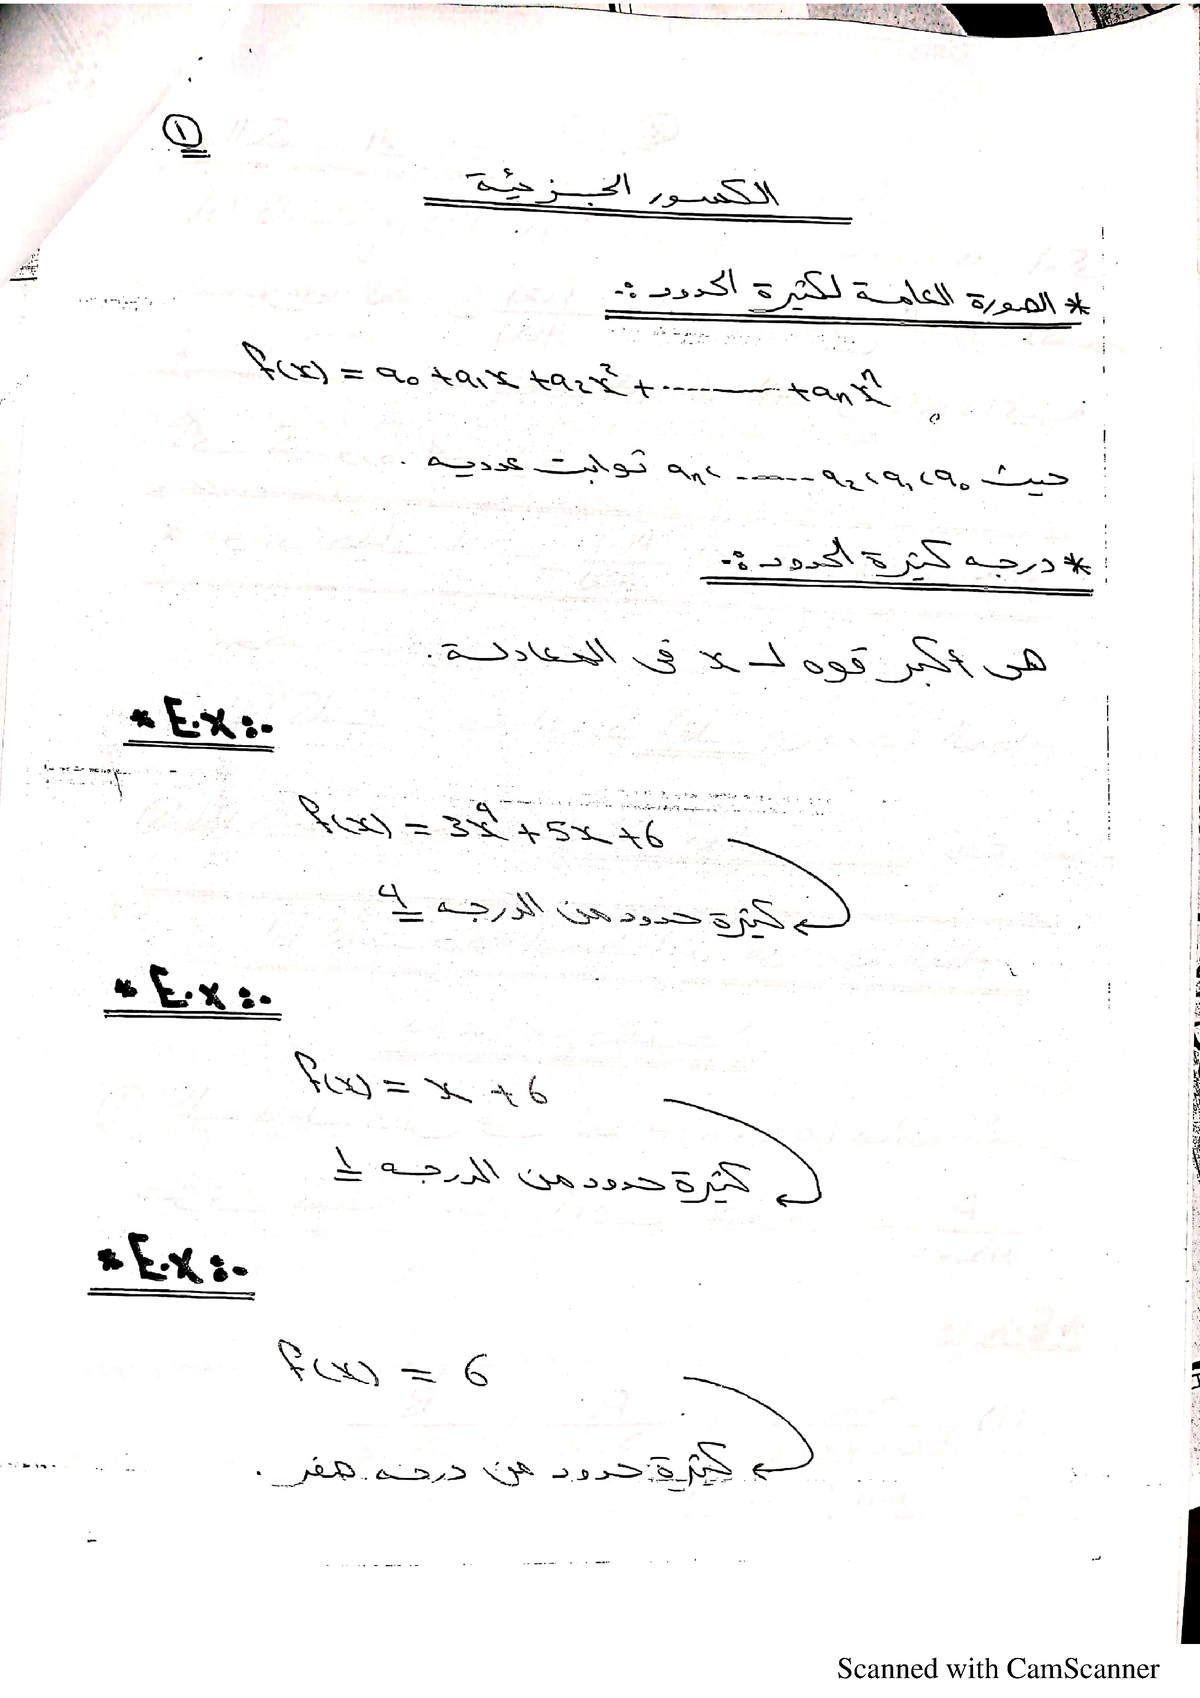 ١
الكسور الجزئية
* الصورة العامة لكثيرة الحدود :-
f(x) = a₀ + a₁x + a₂x² + ............ + aₙxⁿ
حيث a₀ , a₁ , a₂ ......... , aₙ ثوابت عدديه .
* درجه كثيرة الحدود :-
هى أكبر قوه لـ x فى المعادلة .
* E.X :-
f(x) = 3x⁴ + 5x + 6
كثيرة حدود من الدرجه 4
* E.X :-
f(x) = x + 6
كثيرة حدود من الدرجه 1
* E.X :-
f(x) = 6
كثيرة حدود من درجه صفر .
Scanned with CamScanner